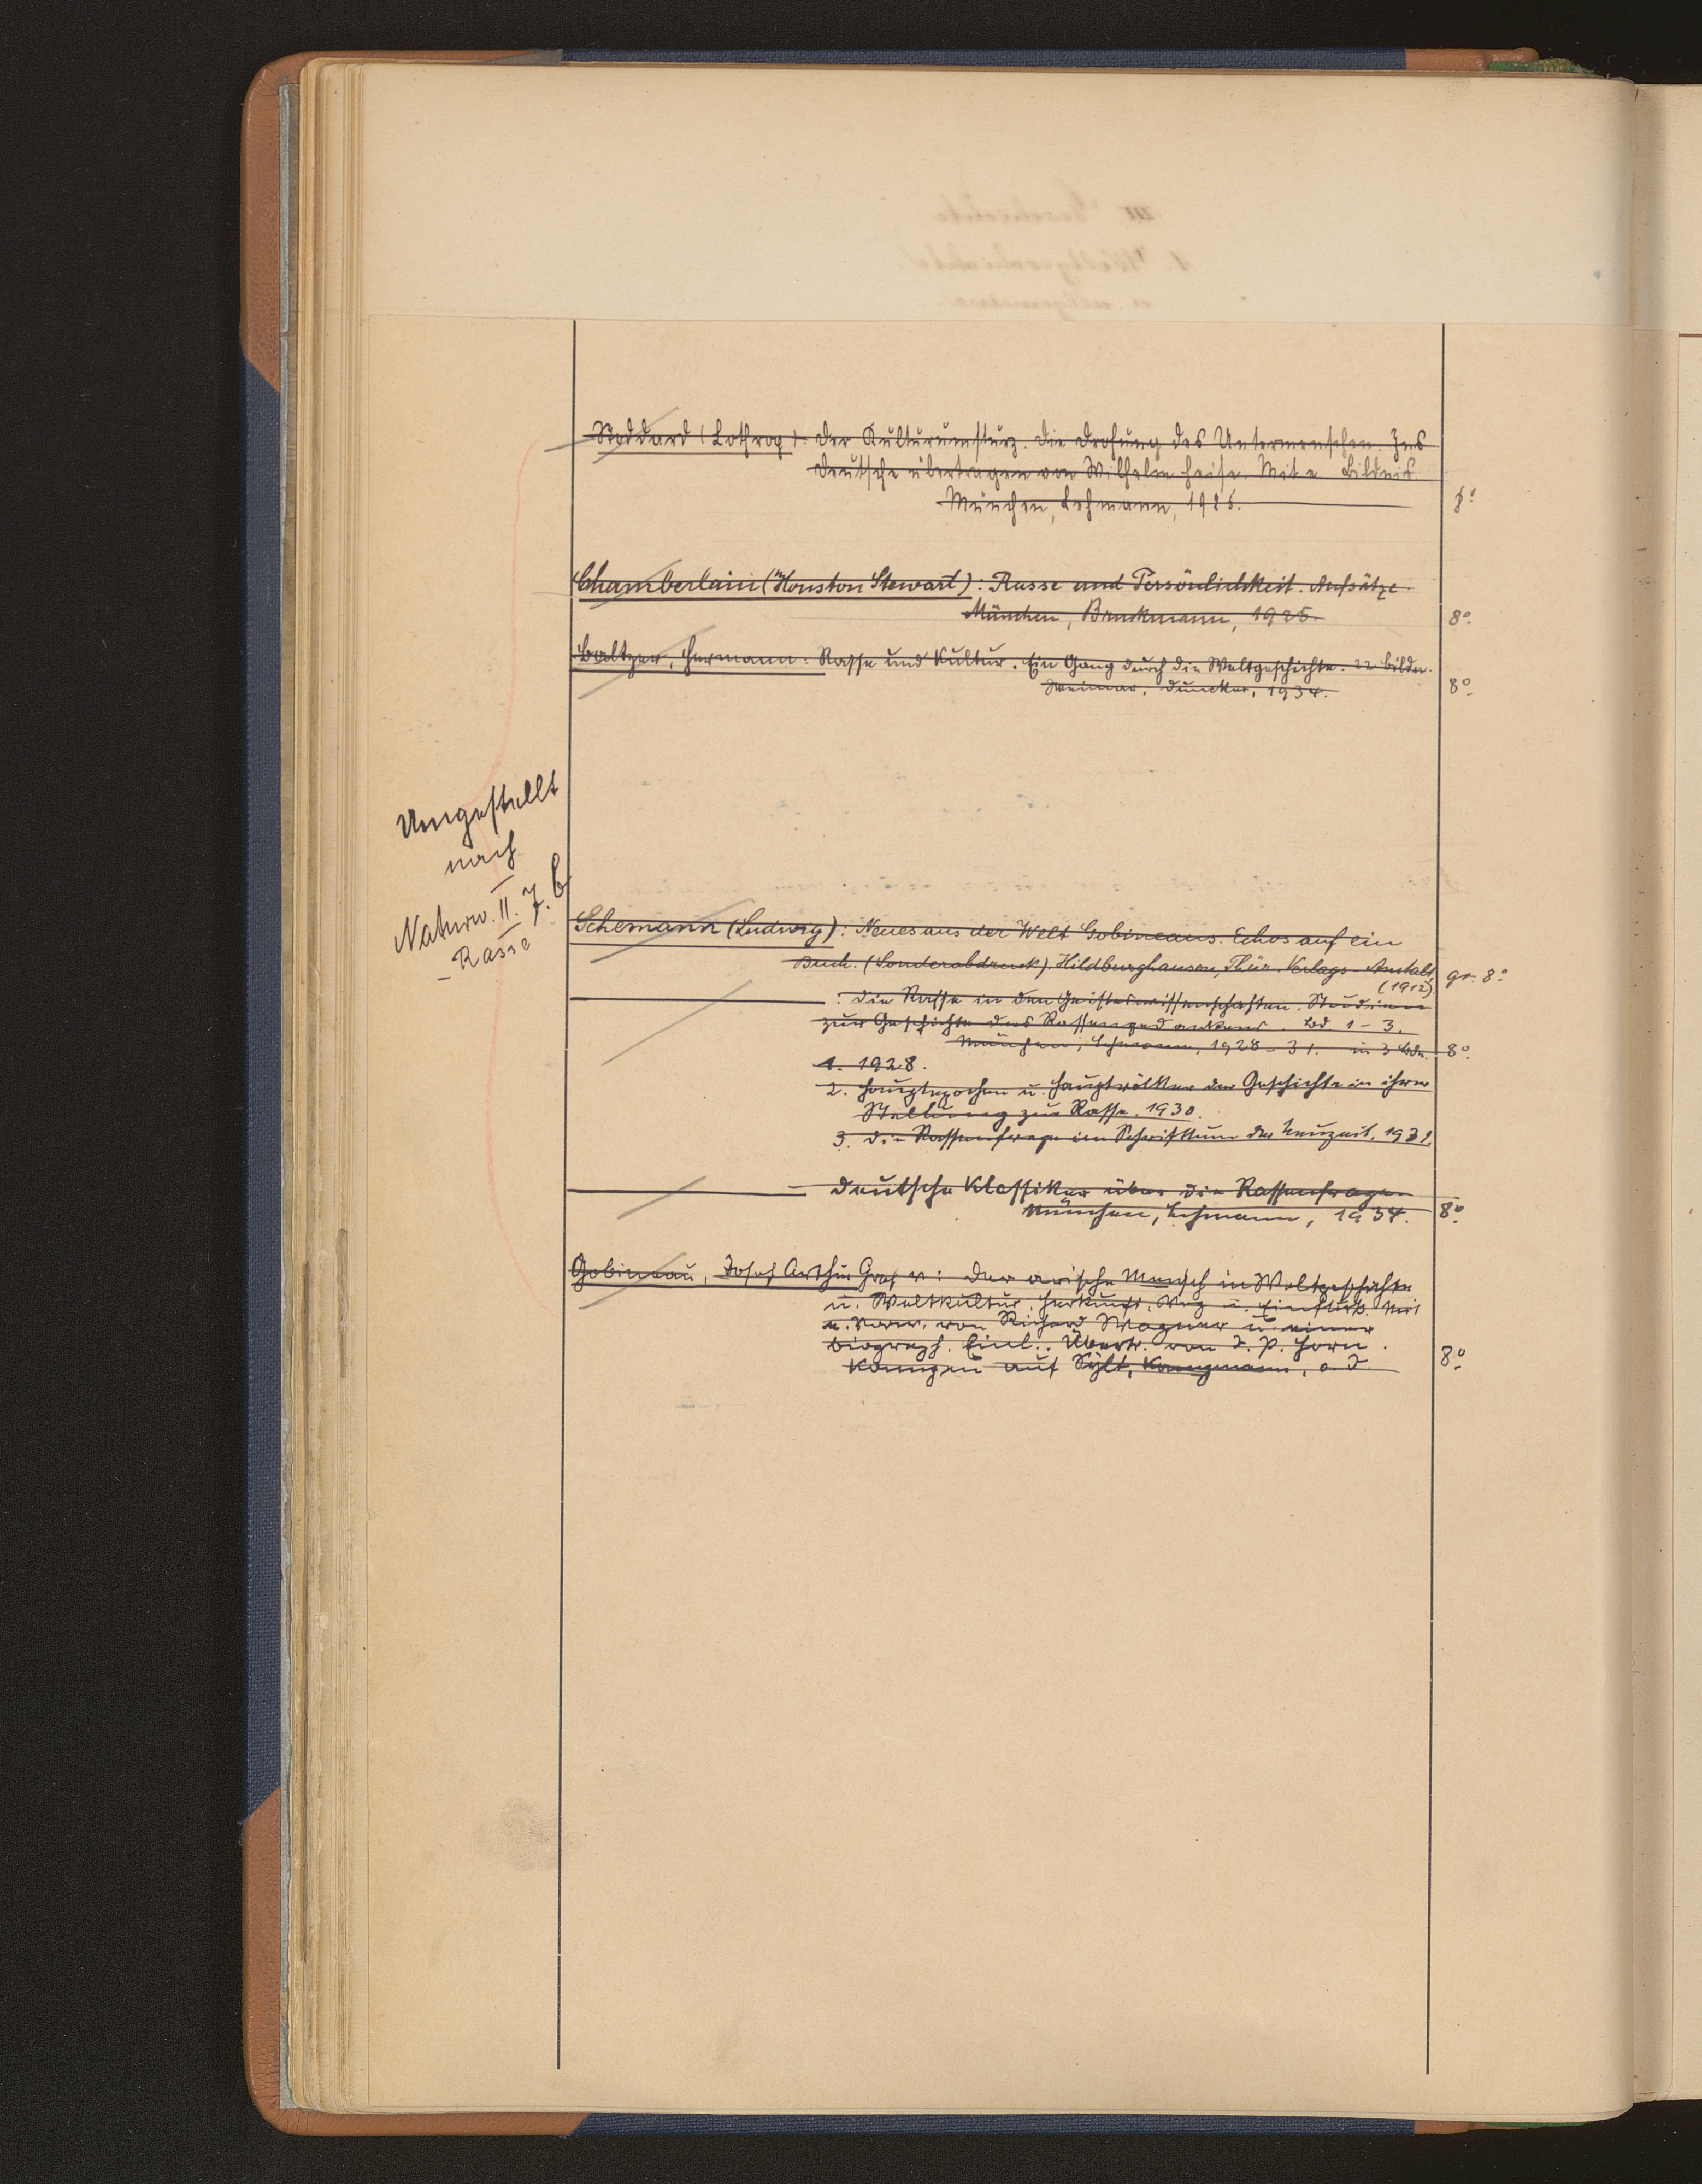 Stoddard (Lothrop): Der Kulturumsturz. Die Drohung des Untermenschen. Ins
Deutsche übertragen von Wilhelm Heise. Mit e Bildnis.
München, Lehmann, 1925.
8°
Chamberlain (Houston Stewart): Rasse und Persönlichkeit. Aufsätze.
München, Bruckmann, 1925.
8°
Baltzer, Hermann: Rasse und Kultur. Ein Gang durch die Weltgeschichte. Bilder.
Weimar, Duncker, 1934.
8°
Umgestellt
nach
Naturw. II. 7. b
– Rasse
Schemann (Ludwig): Neues aus der Welt Gobineaus. Echos auf ein
Buch. (Sonderabdruck). Hildburghausen, Thür. Verlags-Anstalt,
(1912)
gr. 8°
: Die Rasse in den Geisteswissenschaften. Studien
zur Geschichte des Rassengedankens. Bd. 1–3.
München, Lehmann, 1928–31. in 3 Bdn.
8°
1. 1928.
2. Hauptepochen u. Hauptvölker der Geschichte in ihrer
Stellung zur Rasse. 1930.
3. Die Rassenfrage im Schrifttum der Neuzeit. 1931.
– Deutsche Klassiker über die Rassenfrage.
München, Lehmann, 1934.
8°
Gobineau, Josef Arthur Graf v: Der arische Mensch in Weltgeschichte
u. Weltkultur. Herkunft, Weg u. Einfluss. Mit
e. Vorw. von Richard Wagner u. einer
biograph. Einl.. Übertr. von J. P. Horn.
Kampen auf Sylt, Kampmann, o. J
8°